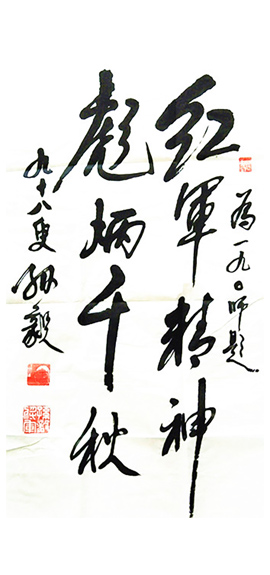 为一九〇师题
红軍精神
彪炳千秋
九十八叟孙毅